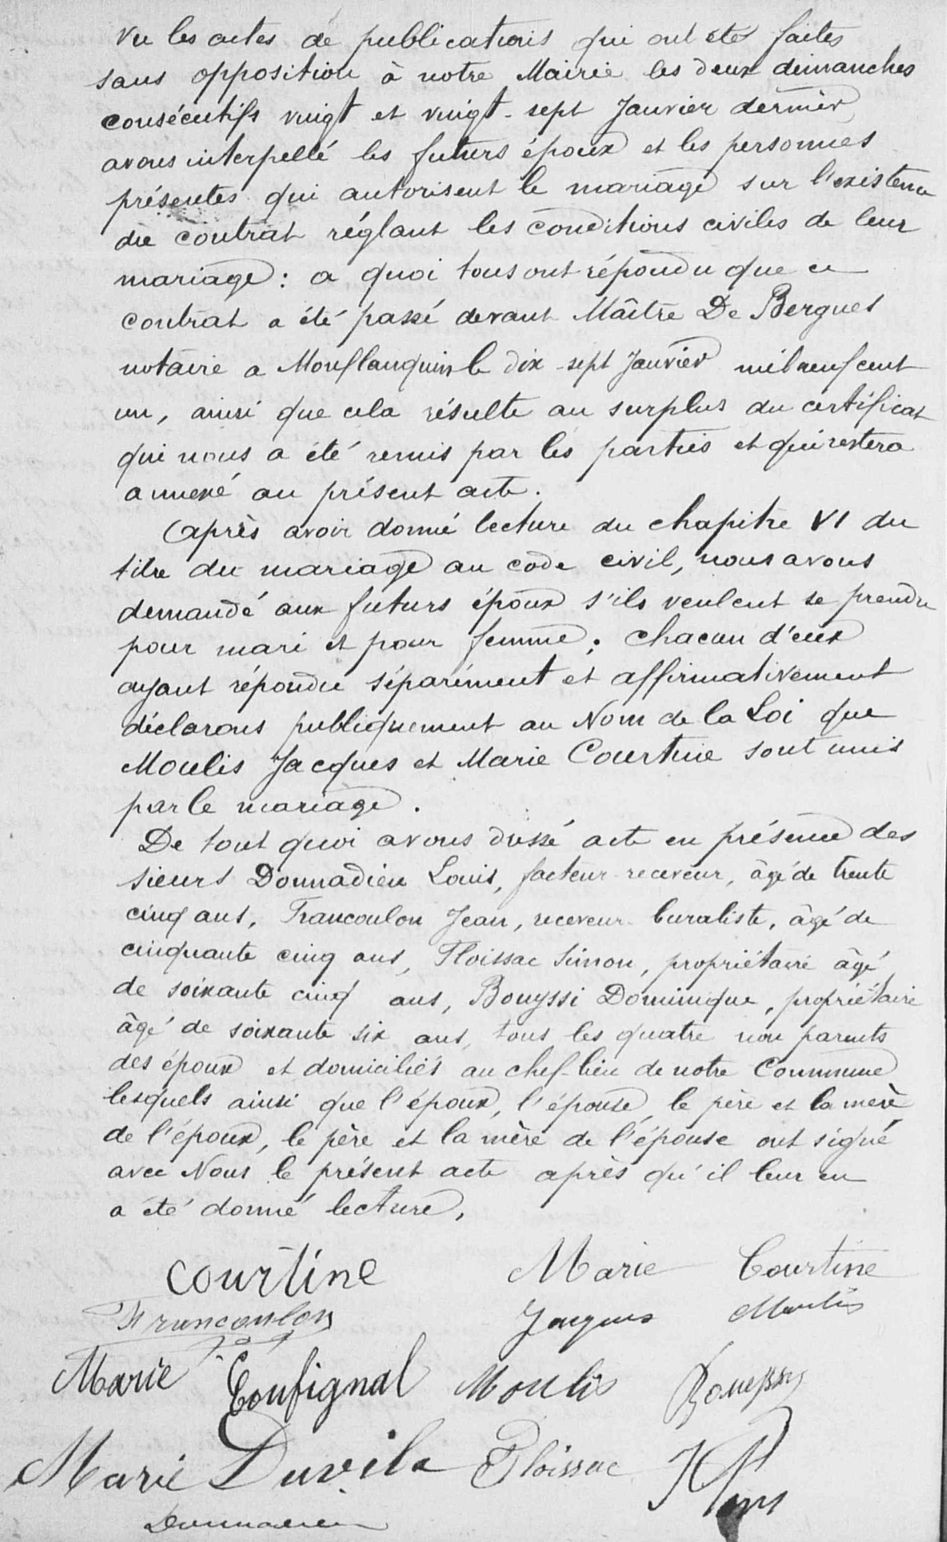 Vu les actes de publications qui ont étés faites
sans opposition à notre Mairie les deux dimanches
consécutifs vingt et vingt-sept Janvier dernier
avons interpellé les futurs époux et les personnes
présentes qui autorisent le mariage sur l'existence
du contrat réglant les conditions civiles de leur
mariage : a quoi tous ont répondu que ce
contrat a été passé devant Maître De Bergues
notaire a Monflanquin le dix-sept Janvier mil neuf cent
un, ainsi que cela résulte au surplus du certificat
qui nous a été remis par les parties et qui restera
annexé au présent acte.
Après avoir donné lecture du chapitre VI du
titre du mariage au code civil, nous avons
demandé aux futurs époux s'ils veulent se prendre
pour mari et pour femme ; chacun d'eux
ayant répondu séparément et affirmativement
déclarons publiquement au Nom de la Loi que
Moulis Jacques et Marie Courtine sont unis
par le mariage.
De tout quoi avons dressé acte en présence des
sieurs Donnadieu Louis, facteur-receveur, âgé de trente
cinq ans, Francoulon Jean, receveur-buraliste, âgé de
cinquante cinq ans, Floissac Simon, propriétaire âgé
de soixante cinq ans, Bouyssi Dominique, propriétaire
âgé de soixante six ans, tous les quatre non parents
des époux et domiciliés au chef-lieu de notre Commune
lesquels ainsi que l'époux, l'épouse, le père et la mère
de l'époux, le père et la mère de l'épouse ont signé
avec Nous le présent acte après qu'il leur en
a été donné lecture,
Courtine Marie Courtine
Francoulon Jacques Moulis
Marie Confignal Moulis Bouyssy
Marie Duvila Floissac
Donnadieu